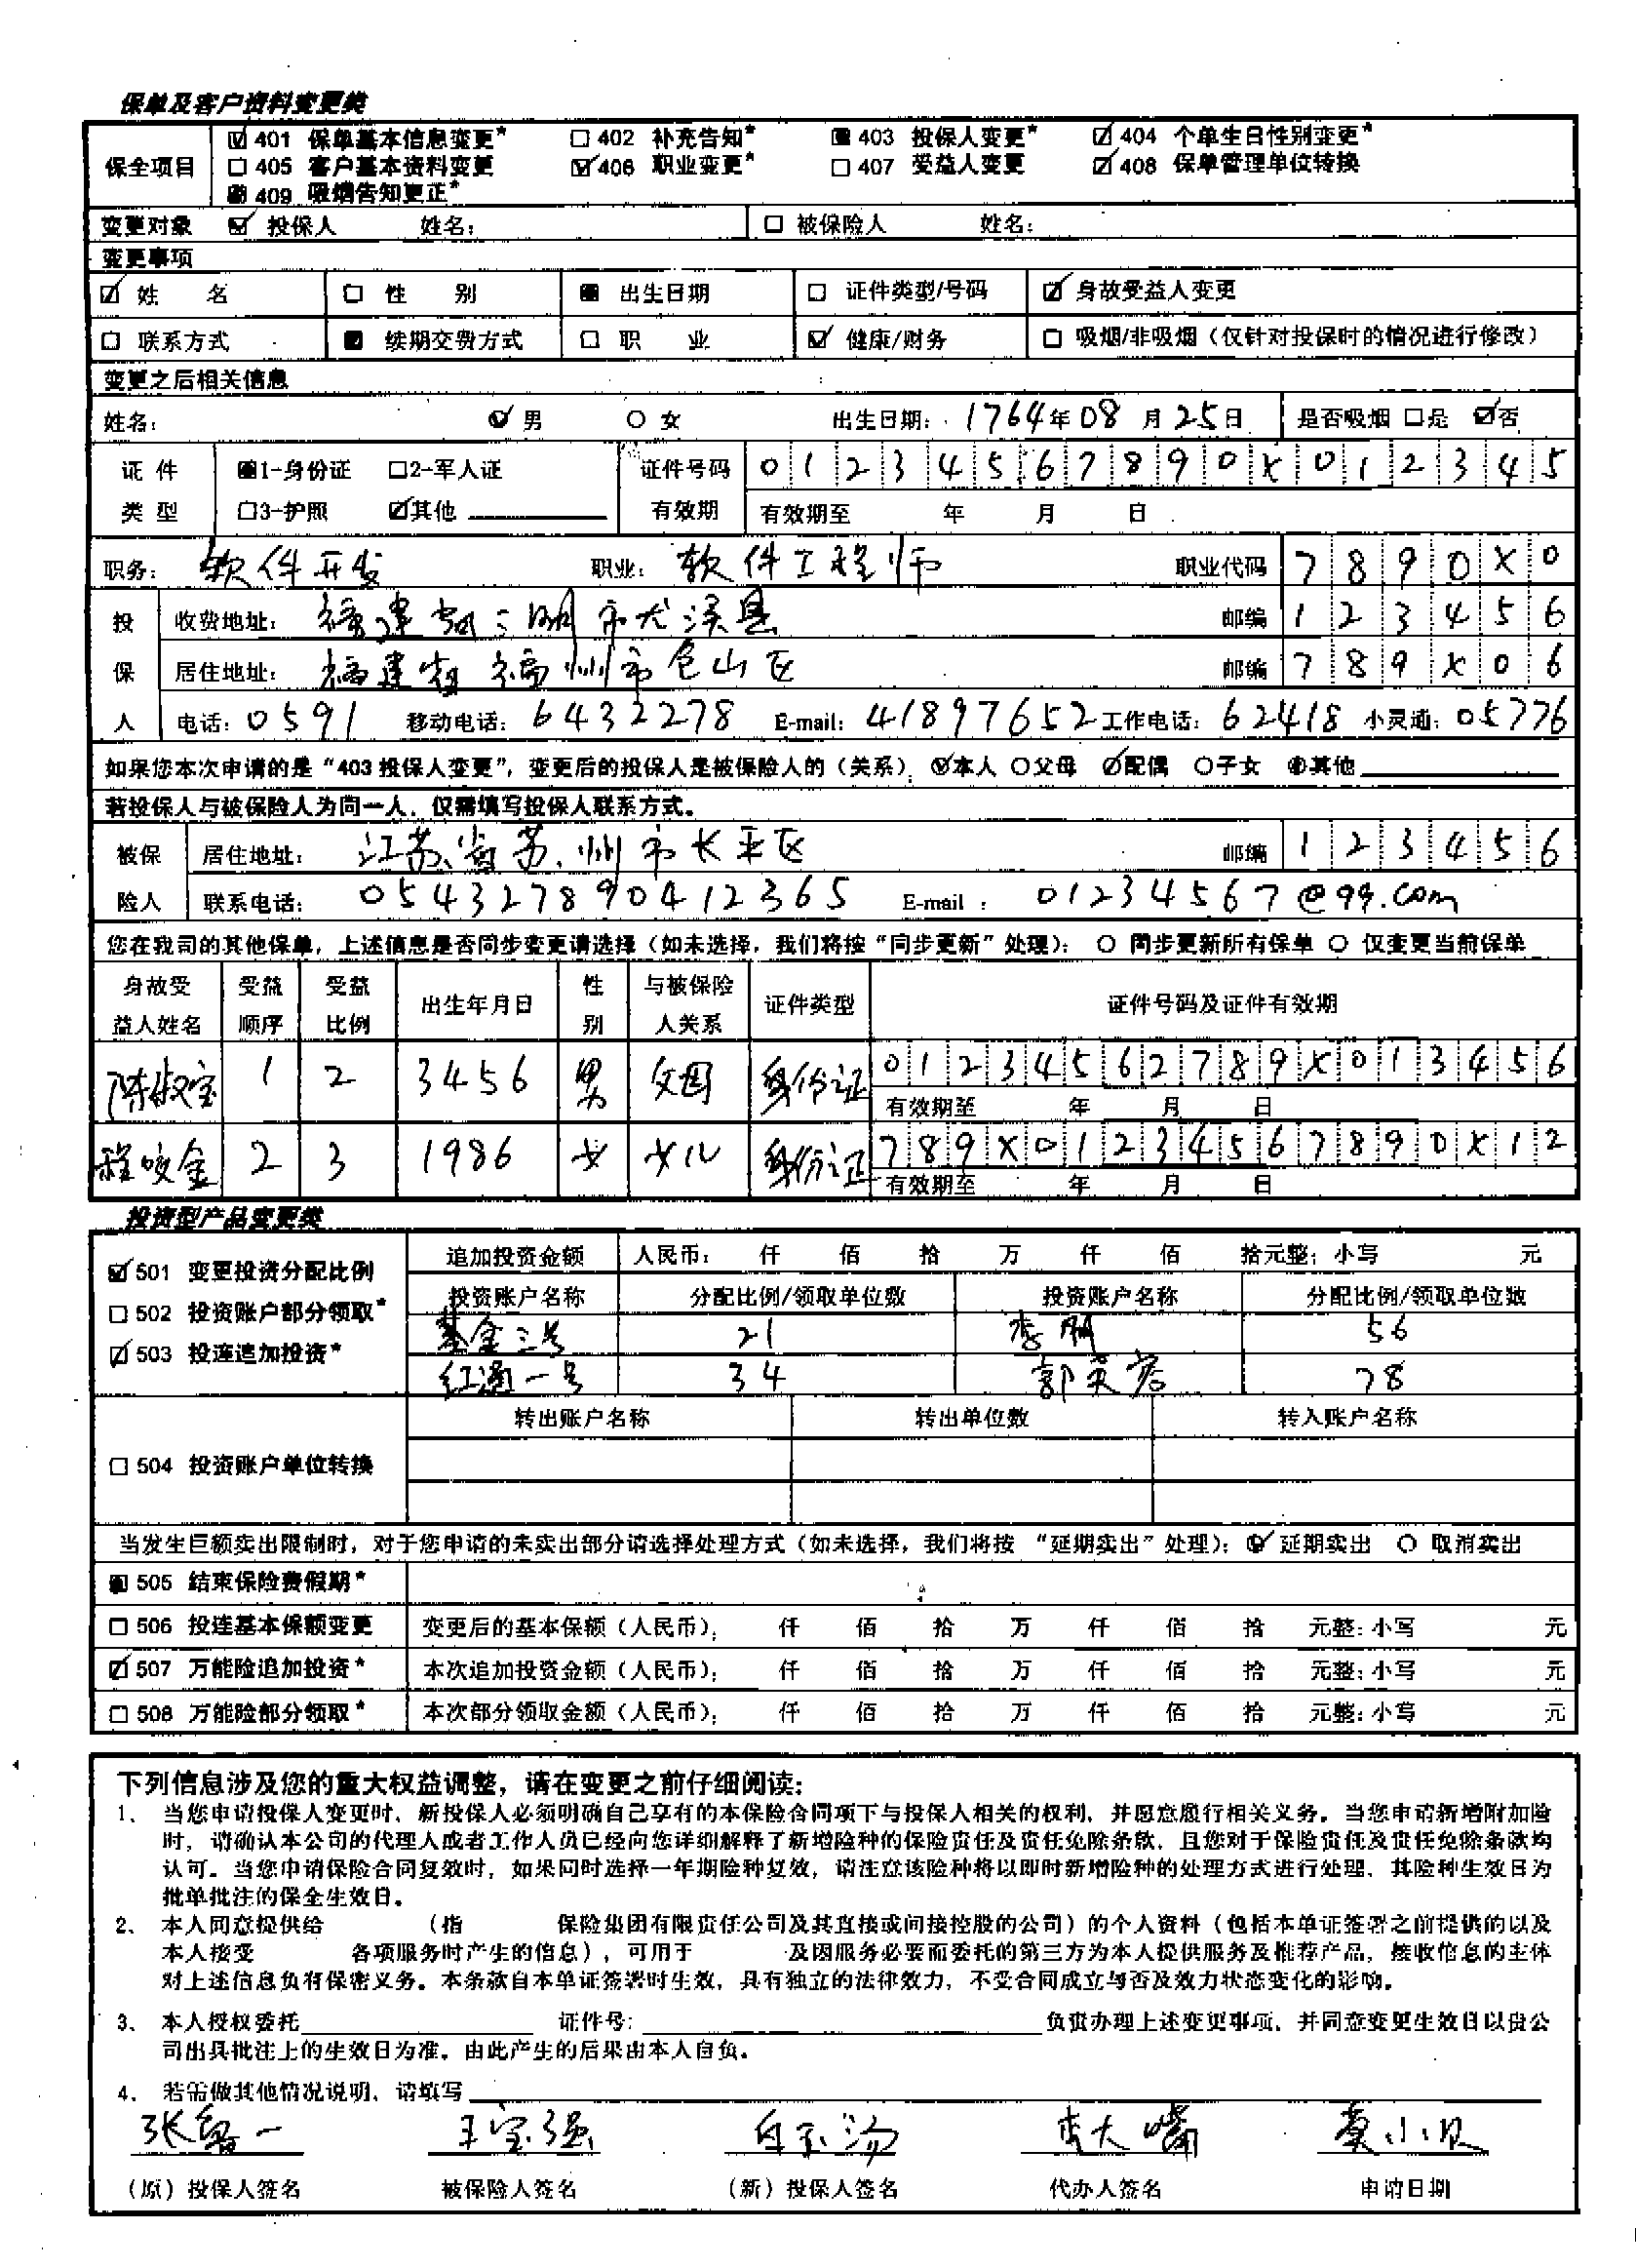 保单及客户资料变更类
保全项目 ☑401 保单基本信息变更* □402 补充告知* ■403 投保人变更* ☑404 个单生日性别变更*
□405 客户基本资料变更 ☑406 职业变更* □407 受益人变更 ☑408 保单管理单位转换
■409 吸烟告知更正*
变更对象 ☑ 投保人 姓名: □ 被保险人 姓名:
变更事项
☑ 姓 名 □ 性 别 ■ 出生日期 □ 证件类型/号码 ☑ 身故受益人变更
□ 联系方式 ■ 续期交费方式 □ 职 业 ☑ 健康/财务 □ 吸烟/非吸烟(仅针对投保时的情况进行修改)
变更之后相关信息
姓名: ☑ 男 ○ 女 出生日期: 1764年08月25日 是否吸烟 □是 ☑否
证件 ■1-身份证 □2-军人证 证件号码 01234567890X012345
类型 □3-护照 ☑其他 有效期 有效期至 年 月 日
职务: 软件开发 职业: 软件工程师 职业代码 7890X0
投 收费地址: 福建省三明市尤溪县 邮编 123456
保 居住地址: 福建省福州市仓山区 邮编 789X06
人 电话: 0591 移动电话: 6432278 E-mail: 41897652 工作电话: 62418 小灵通: 05776
如果您本次申请的是“403投保人变更”,变更后的投保人是被保险人的(关系) ☑本人 ○父母 ☑配偶 ○子女 ●其他
若投保人与被保险人为同一人,仅需填写投保人联系方式。
被保 居住地址: 江苏省苏州市长平区 邮编 123456
险人 联系电话: 054327890412365 E-mail: 01234567@qq.com
您在我司的其他保单,上述信息是否同步变更请选择(如未选择,我们将按“同步更新”处理): ○ 同步更新所有保单 ○ 仅变更当前保单
身故受益人姓名 受益顺序 受益比例 出生年月日 性别 与被保险人关系 证件类型 证件号码及证件有效期
陈叔宝 1 2 3456 男 父母 身份证 01234562789X013456
有效期至 年 月 日
程咬金 2 3 1986 女 女儿 身份证 789X01234567890X12
有效期至 年 月 日
投资型产品变更类
☑501 变更投资分配比例 追加投资金额 人民币: 仟 佰 拾 万 仟 佰 拾元整;小写 元
□502 投资账户部分领取* 投资账户名称 分配比例/领取单位数 投资账户名称 分配比例/领取单位数
☑503 投连追加投资* 基金三号 21 李朋 56
红通一号 34 郭芙蓉 78
转出账户名称 转出单位数 转入账户名称
□504 投资账户单位转换
当发生巨额卖出限制时,对于您申请的未卖出部分请选择处理方式(如未选择,我们将按“延期卖出”处理): ☑ 延期卖出 ○ 取消卖出
■505 结束保险费假期*
□506 投连基本保额变更 变更后的基本保额(人民币): 仟 佰 拾 万 仟 佰 拾 元整;小写 元
☑507 万能险追加投资* 本次追加投资金额(人民币): 仟 佰 拾 万 仟 佰 拾 元整;小写 元
□508 万能险部分领取* 本次部分领取金额(人民币): 仟 佰 拾 万 仟 佰 拾 元整;小写 元
下列信息涉及您的重大权益调整,请在变更之前仔细阅读:
1、 当您申请投保人变更时,新投保人必须明确自己享有的本保险合同项下与投保人相关的权利,并愿意履行相关义务。当您申请新增附加险
时,请确认本公司的代理人或者工作人员已经向您详细解释了新增险种的保险责任及责任免除条款,且您对于保险责任及责任免除条款均
认可。当您申请保险合同复效时,如果同时选择一年期险种复效,请注意该险种将以即时新增险种的处理方式进行处理,其险种生效日为
批单批注的保全生效日。
2、 本人同意提供给 (指 保险集团有限责任公司及其直接或间接控股的公司)的个人资料(包括本单证签署之前提供的以及
本人接受 各项服务时产生的信息),可用于 及因服务必要而委托的第三方为本人提供服务及推荐产品,接收信息的主体
对上述信息负有保密义务。本条款自本单证签署时生效,具有独立的法律效力,不受合同成立与否及效力状态变化的影响。
3、 本人授权委托 证件号: 负责办理上述变更事项,并同意变更生效日以贵公
司出具批注上的生效日为准,由此产生的后果由本人自负。
4、 若需做其他情况说明,请填写
张鲁一 王宝强 白玉汤 李大嘴 莫小贝
(原)投保人签名 被保险人签名 (新)投保人签名 代办人签名 申请日期